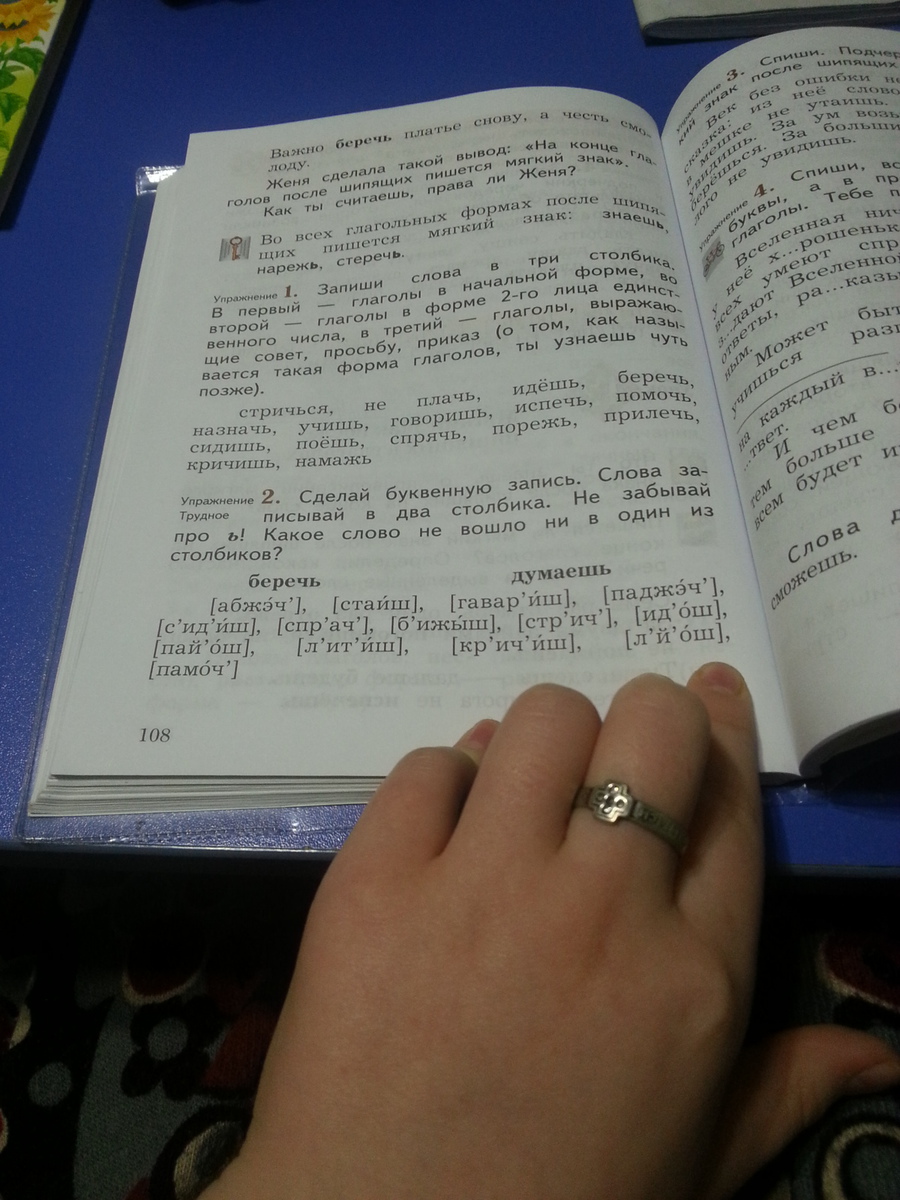 Важно беречь платье снову, а честь смо-
лоду.
Женя сделала такой вывод: «На конце гла-
голов после шипящих пишется мягкий знак».
Как ты считаешь, права ли Женя?
Во всех глагольных формах после шипя-
щих пишется мягкий знак: знаешь,
нарежь, стеречь.
Упражнение 1. Запиши слова в три столбика.
В первый — глаголы в начальной форме, во
второй — глаголы в форме 2-го лица единст-
венного числа, в третий — глаголы, выражаю-
щие совет, просьбу, приказ (о том, как назы-
вается такая форма глаголов, ты узнаешь чуть
позже).
стричься, не плачь, идёшь, беречь,
назначь, учишь, говоришь, испечь, помочь,
сидишь, поёшь, спрячь, порежь, прилечь,
кричишь, намажь
Упражнение 2. Сделай буквенную запись. Слова за-
Трудное писывай в два столбика. Не забывай
про ь! Какое слово не вошло ни в один из
столбиков?
беречь думаешь
[абжэ́ч'], [стаи́ш], [гавар'и́ш], [паджэ́ч'],
[с'ид'и́ш], [спр'ач'], [б'ижы́ш], [стр'ич'], [ид'о́ш],
[пай'о́ш], [л'ит'и́ш], [кр'ич'и́ш], [л'й'о́ш],
[памо́ч']
108
Упражнение 3. Спиши. Подчер
кий знак после шипящих
Век без ошибки
сказка: из неё слово
мешке не утаишь.
увидишь. За ум возь
берёшься. За больши
лого не увидишь.
Упражнение 4. Спиши, вс
буквы, а в пр
глаголы. Тебе п
Вселенная нич
у неё х...рошеньк
всех умеют спр
з...дают Вселенно
ответы, ра...казы
ным.
Может быт
учишься разг
на каждый в...
...твет.
И чем бо
тем больше
всем будет и
Слова д
сможешь.